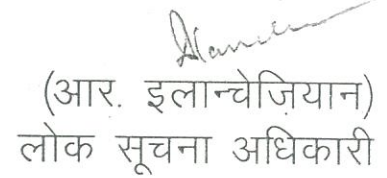 (आर. इलान्चेज़ियान)
लोक सूचना अधिकारी